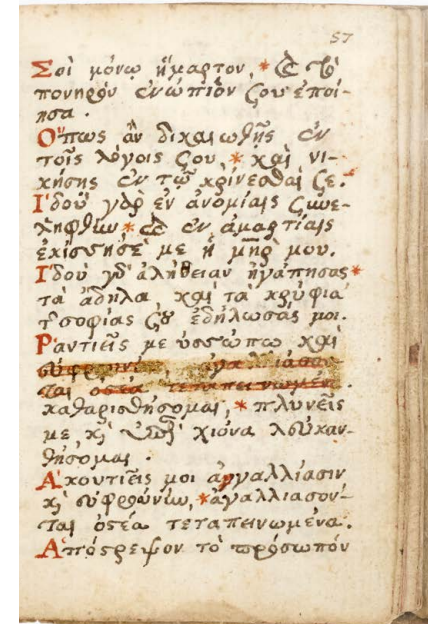 57
Σοὶ μόνῳ ἥμαρτον, * καὶ τὸ
πονηρὸν ἐνώπιόν σου ἐποί-
ησα.
Ὅπως ἂν δικαιωθῇς ἐν
τοῖς λόγοις σου, * καὶ νι-
κήσῃς ἐν τῷ κρίνεσθαί σε.
Ἰδοὺ γὰρ ἐν ἀνομίαις συνε-
λήφθην * καὶ ἐν ἁμαρτίαις
ἐκίσσησέ με ἡ μηρ μου.
Ἰδοὺ γὰρ ἀλήθειαν ἠγάπησας *
τὰ ἄδηλα καὶ τὰ κρύφια
τῆς σοφίας σου ἐδήλωσάς μοι.
Ῥαντιεῖς με ὑσσώπῳ καὶ
εὐφροσύνην, ἀγαλλιάσον-
ται ὀστέα τεταπεινωμένα.
καθαρισθήσομαι, * πλυνεῖς
με, καὶ ὑπὲρ χιόνα λευκαν-
θήσομαι.
Ἀκουτιεῖς μοι ἀγαλλίασιν
καὶ εὐφροσύνην, * ἀγαλλιάσον-
ται ὀστέα τεταπεινωμένα.
Ἀπόστρεψον τὸ πρόσωπόν